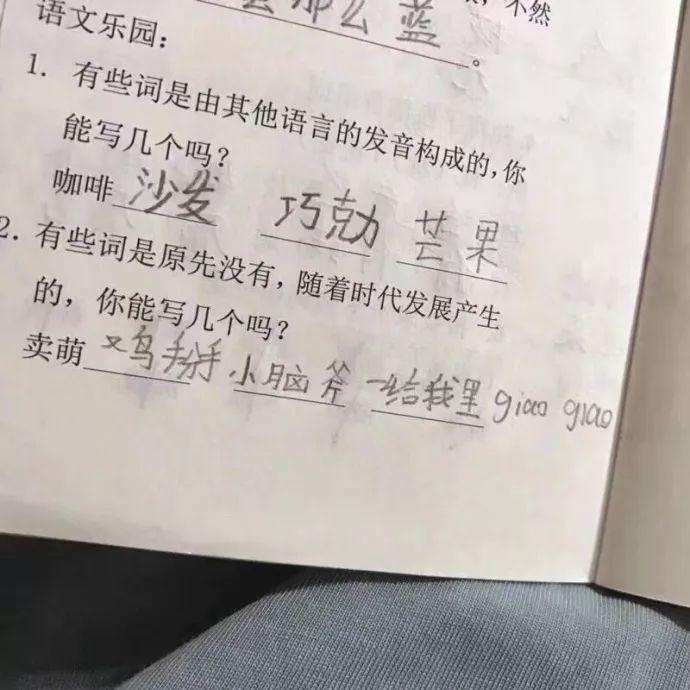 么那么蓝。
不然
语文乐园：
1. 有些词是由其他语言的发音构成的，你
能写几个吗？
咖啡 沙发 巧克力 芒果
2. 有些词是原先没有，随着时代发展产生
的，你能写几个吗？
卖萌 鸡掰 小脑斧 一给我里 giao giao